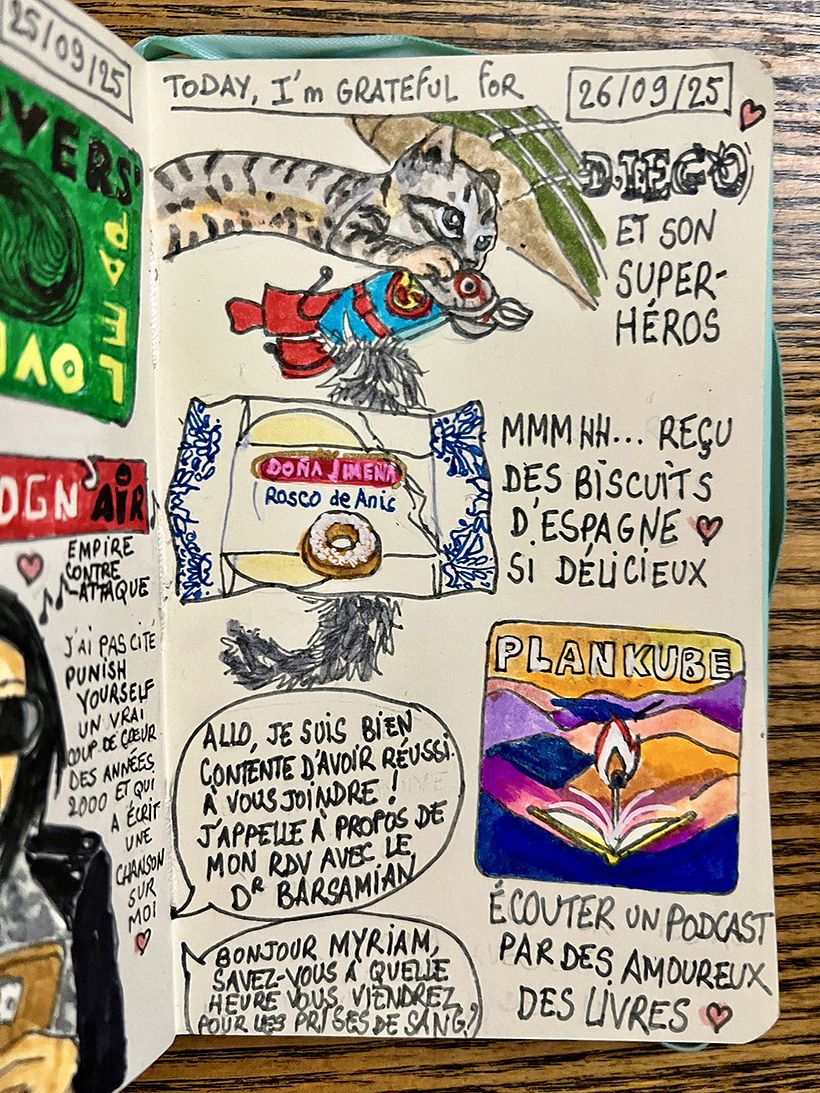 25/09/25
OVERS'
LEAP
OVE
DGN'AIR
EMPIRE
CONTRE
-ATTAQUE
J'AI PAS CITÉ
PUNISH
YOURSELF
UN VRAI
COUP DE CŒUR
DES ANNÉES
2000 ET QUI
A ÉCRIT
UNE
CHANSON
SUR
MOI
TODAY, I'm GRATEFUL FOR
26/09/25
DIEGO
ET SON
SUPER-
HÉROS
S
DOÑA JIMENA
Rosco de Anis
MMMHH... REÇU
DES BISCUITS
D'ESPAGNE
SI DÉLICIEUX
PLANKUBE
ALLO, JE SUIS BIEN
CONTENTE D'AVOIR RÉUSSI
À VOUS JOINDRE !
J'APPELLE À PROPOS DE
MON RDV AVEC LE
DR BARSAMIAN
BONJOUR MYRIAM,
SAVEZ-VOUS À QUELLE
HEURE VOUS VIENDREZ
POUR LES PRISES DE SANG?
ÉCOUTER UN PODCAST
PAR DES AMOUREUX
DES LIVRES